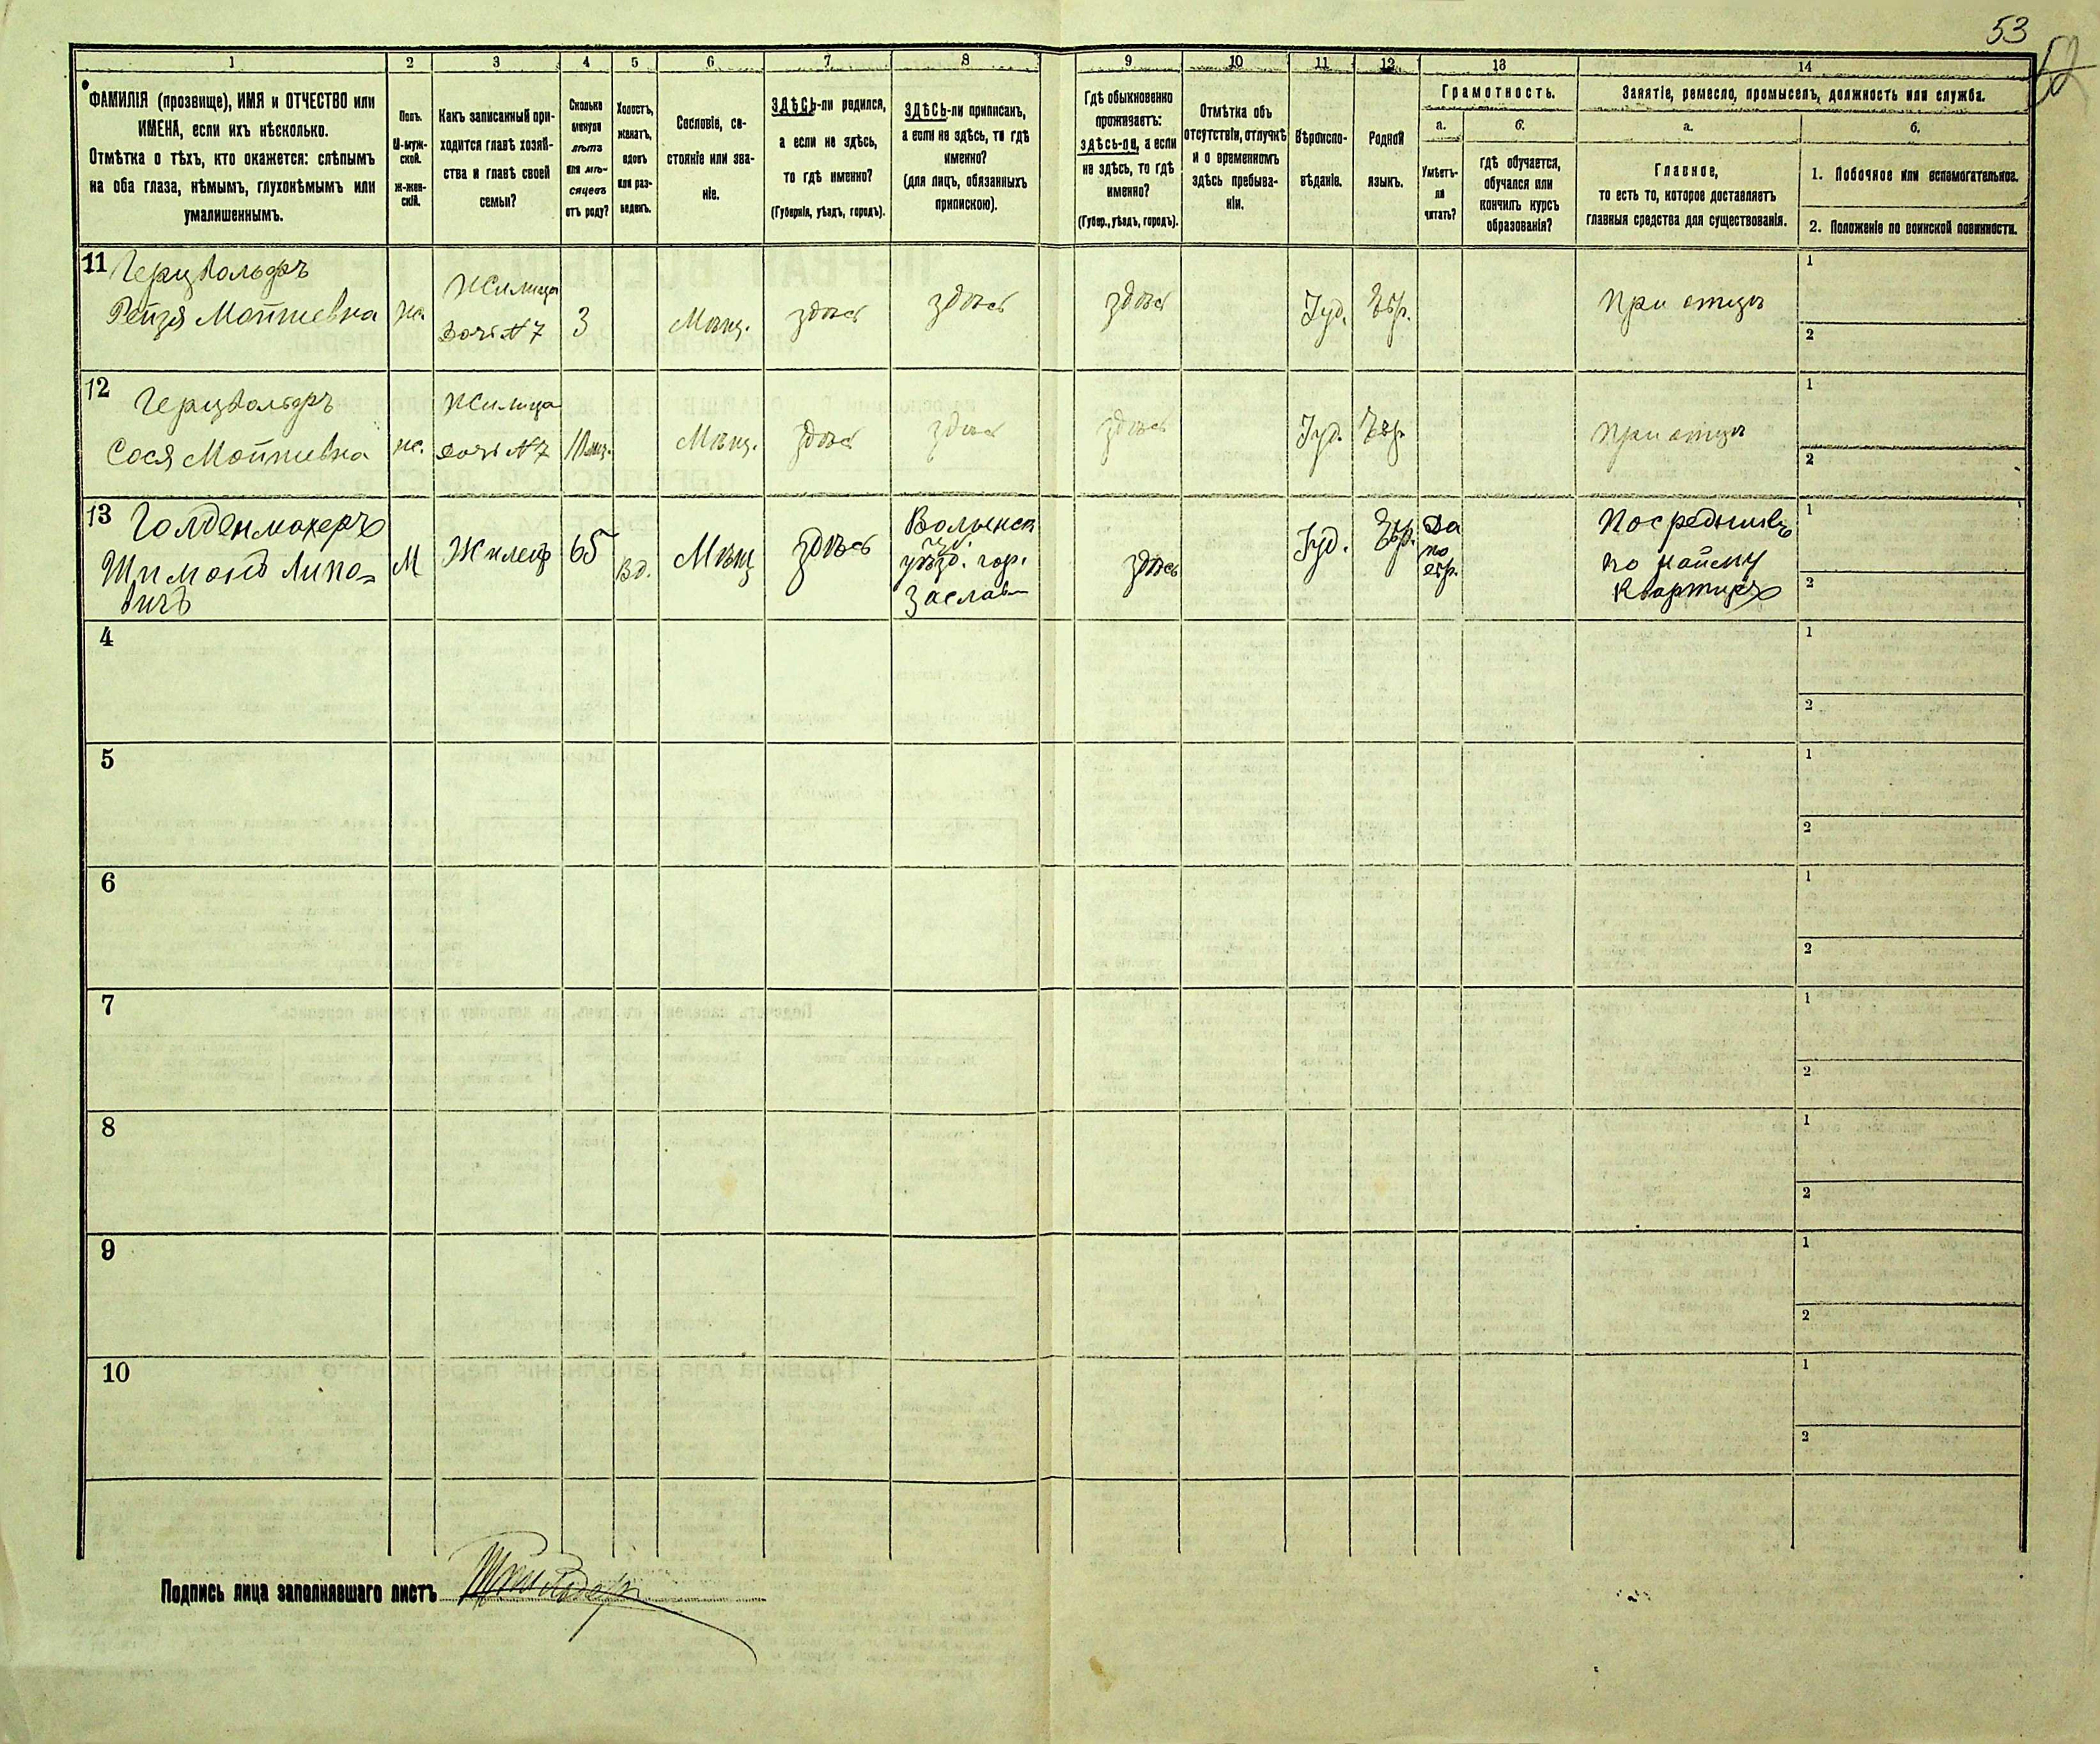 53
52
1 2 3 4 5 6 7 8 9 10 11 12 13 14
ФАМИЛІЯ (прозвище), ИМЯ и ОТЧЕСТВО или
ИМЕНА, если ихъ нѣсколько.
Отмѣтка о тѣхъ, кто окажется: слѣпымъ
на оба глаза, нѣмымъ, глухонѣмымъ или
умалишеннымъ.
Полъ.
М-муж-
ской.
Ж-жен-
скій.
Какъ записанный при-
ходится главѣ хозяй-
ства и главѣ своей
семьи?
Сколько
минуло
лѣтъ
или мѣ-
сяцевъ
отъ роду?
Холостъ,
женатъ,
вдовъ
или раз-
веденъ.
Сословіе, со-
стояніе или зва-
ніе.
ЗДѢСЬ-ли родился,
а если не здѣсь,
то гдѣ именно?
(Губернія, уѣздъ, городъ).
ЗДѢСЬ-ли приписанъ,
а если не здѣсь, то гдѣ
именно?
(для лицъ, обязанныхъ
припискою).
Гдѣ обыкновенно
проживаетъ:
здѣсь-ли, а если
не здѣсь, то гдѣ
именно?
(Губер., уѣздъ, городъ).
Отмѣтка объ
отсутствіи, отлучкѣ
и о временномъ
здѣсь пребыва-
ніи.
Вѣроиспо-
вѣданіе.
Родной
языкъ.
Грамотность.
а.
Умѣетъ-
ли
читать?
б.
гдѣ обучается,
обучался или
кончилъ курсъ
образованія?
Занятіе, ремесло, промыселъ, должность или служба.
а.
Главное,
то есть то, которое доставляетъ
главныя средства для существованія.
б.
1. Побочное или вспомогательное.
2. Положеніе по воинской повинности.
11 Герцвольфъ
Рейзя Мотіевна
ж.
Жилица
дочь N 7
3
Мѣщ.
здѣсь
здѣсь
здѣсь
Іуд.
Евр.
При отцѣ
1
2
12 Герцвольфъ
Сося Мотіевна
ж.
Жилица
дочь N 7
10 мѣс.
Мѣщ.
здѣсь
здѣсь
здѣсь
Іуд.
Евр.
При отцѣ
1
2
13 Голденмахеръ
Шимонъ Липо-
вичъ
М
Жилецъ
65
Вд.
Мѣщ
здѣсь
Волынск
губ.
уѣзд. гор.
Заслав
здѣсь
Іуд.
Евр.
Да
по
евр.
Посредникъ
по найму
Квартиръ
1
2
4
1
2
5
1
2
6
1
2
7
1
2
8
1
2
9
1
2
10
1
2
Подпись лица заполнявшаго листъ